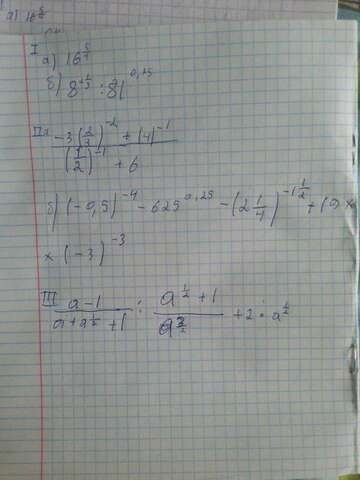 I
а) 16^(5/4)
б) 8^(1/3) : 81^(0,25)
II а) (-3(2/3)^(-2) + (4)^(-1)) / ((1/2)^(-1) + 6)
б) (-0,5)^(-4) - 625^(0,25) - (2 1/4)^(-1 1/2) + 19 ×
× (-3)^(-3)
III (a-1)/(a+a^(1/2)+1) : (a^(1/2)+1)/(a^(3/2)) + 2 · a^(1/2)